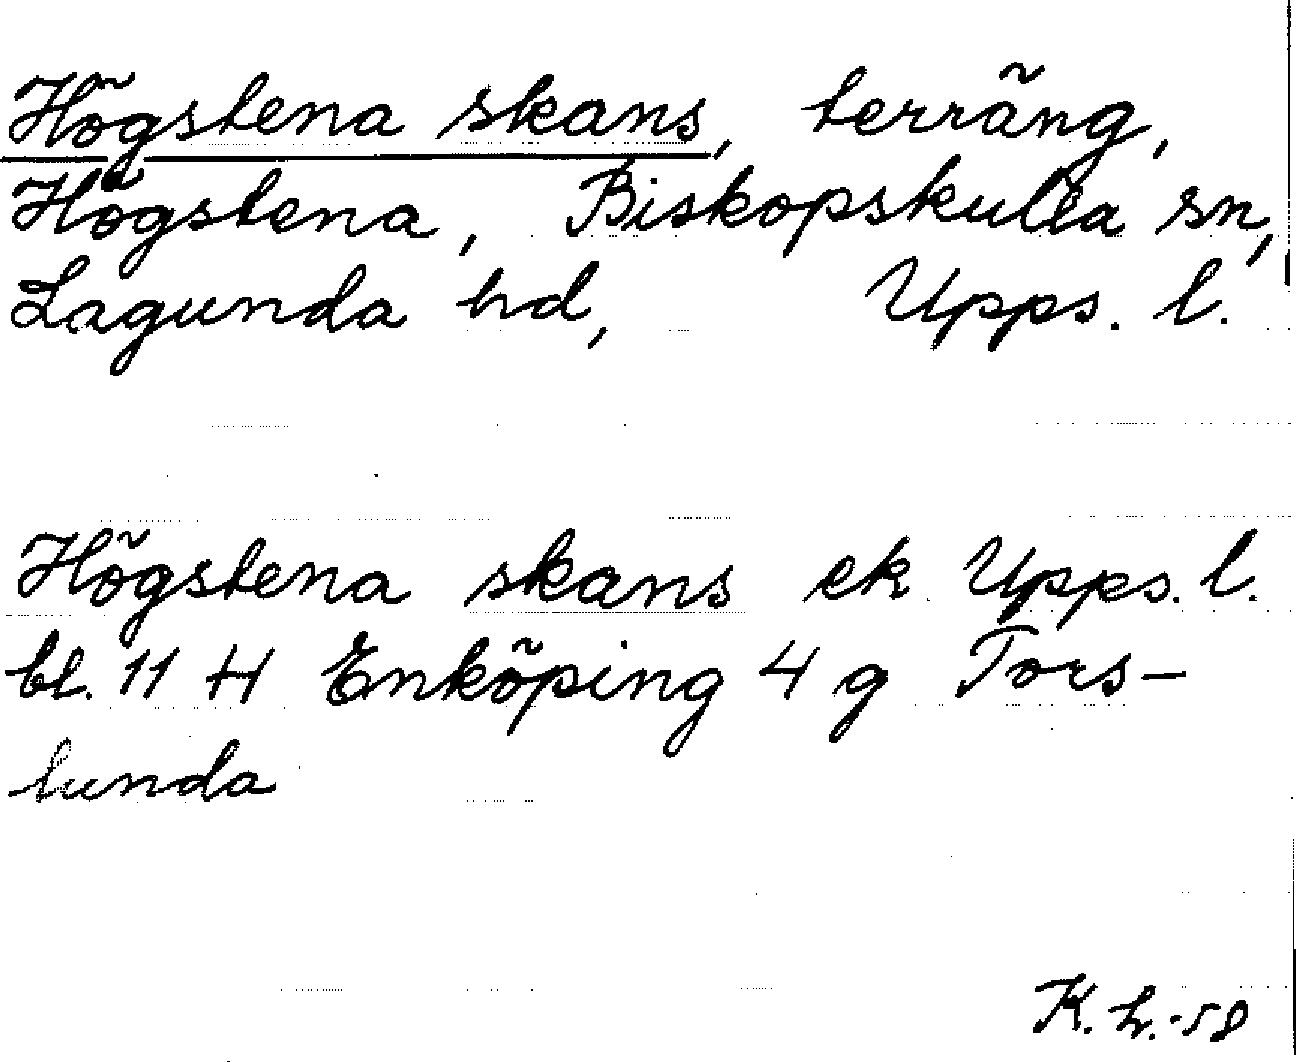 Högstena skans, terräng,
Högstena, Biskopskulla sn,
Lagunda hd, Upps. l.
Högstena skans ek Upps. l.
bl. 11 H Enköping 4 g Tors-
lunda
K. h. -58